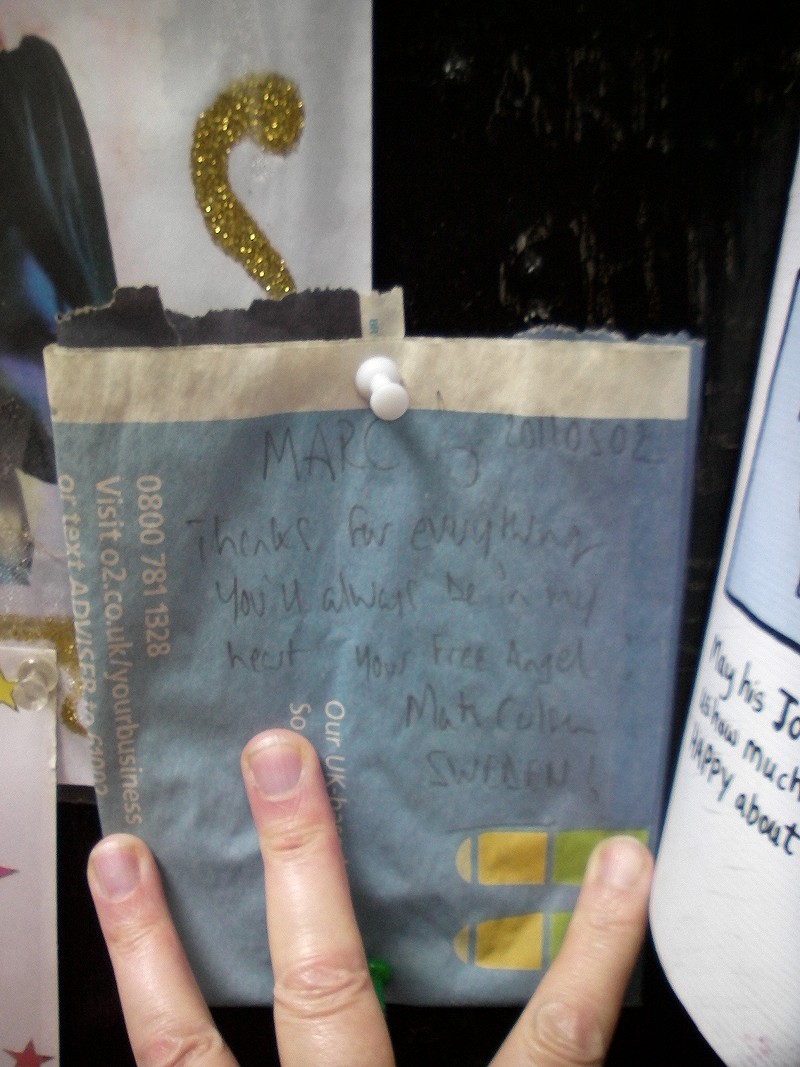 MARC 20110502
Thanks for everything
You'll always be in my
heart Your Free Angel
SWEDEN!
0800 781 1328
Visit o2.co.uk/yourbusiness
or text ADVISER to
Our UK
So
May his Jo
us how much
HAPPY about